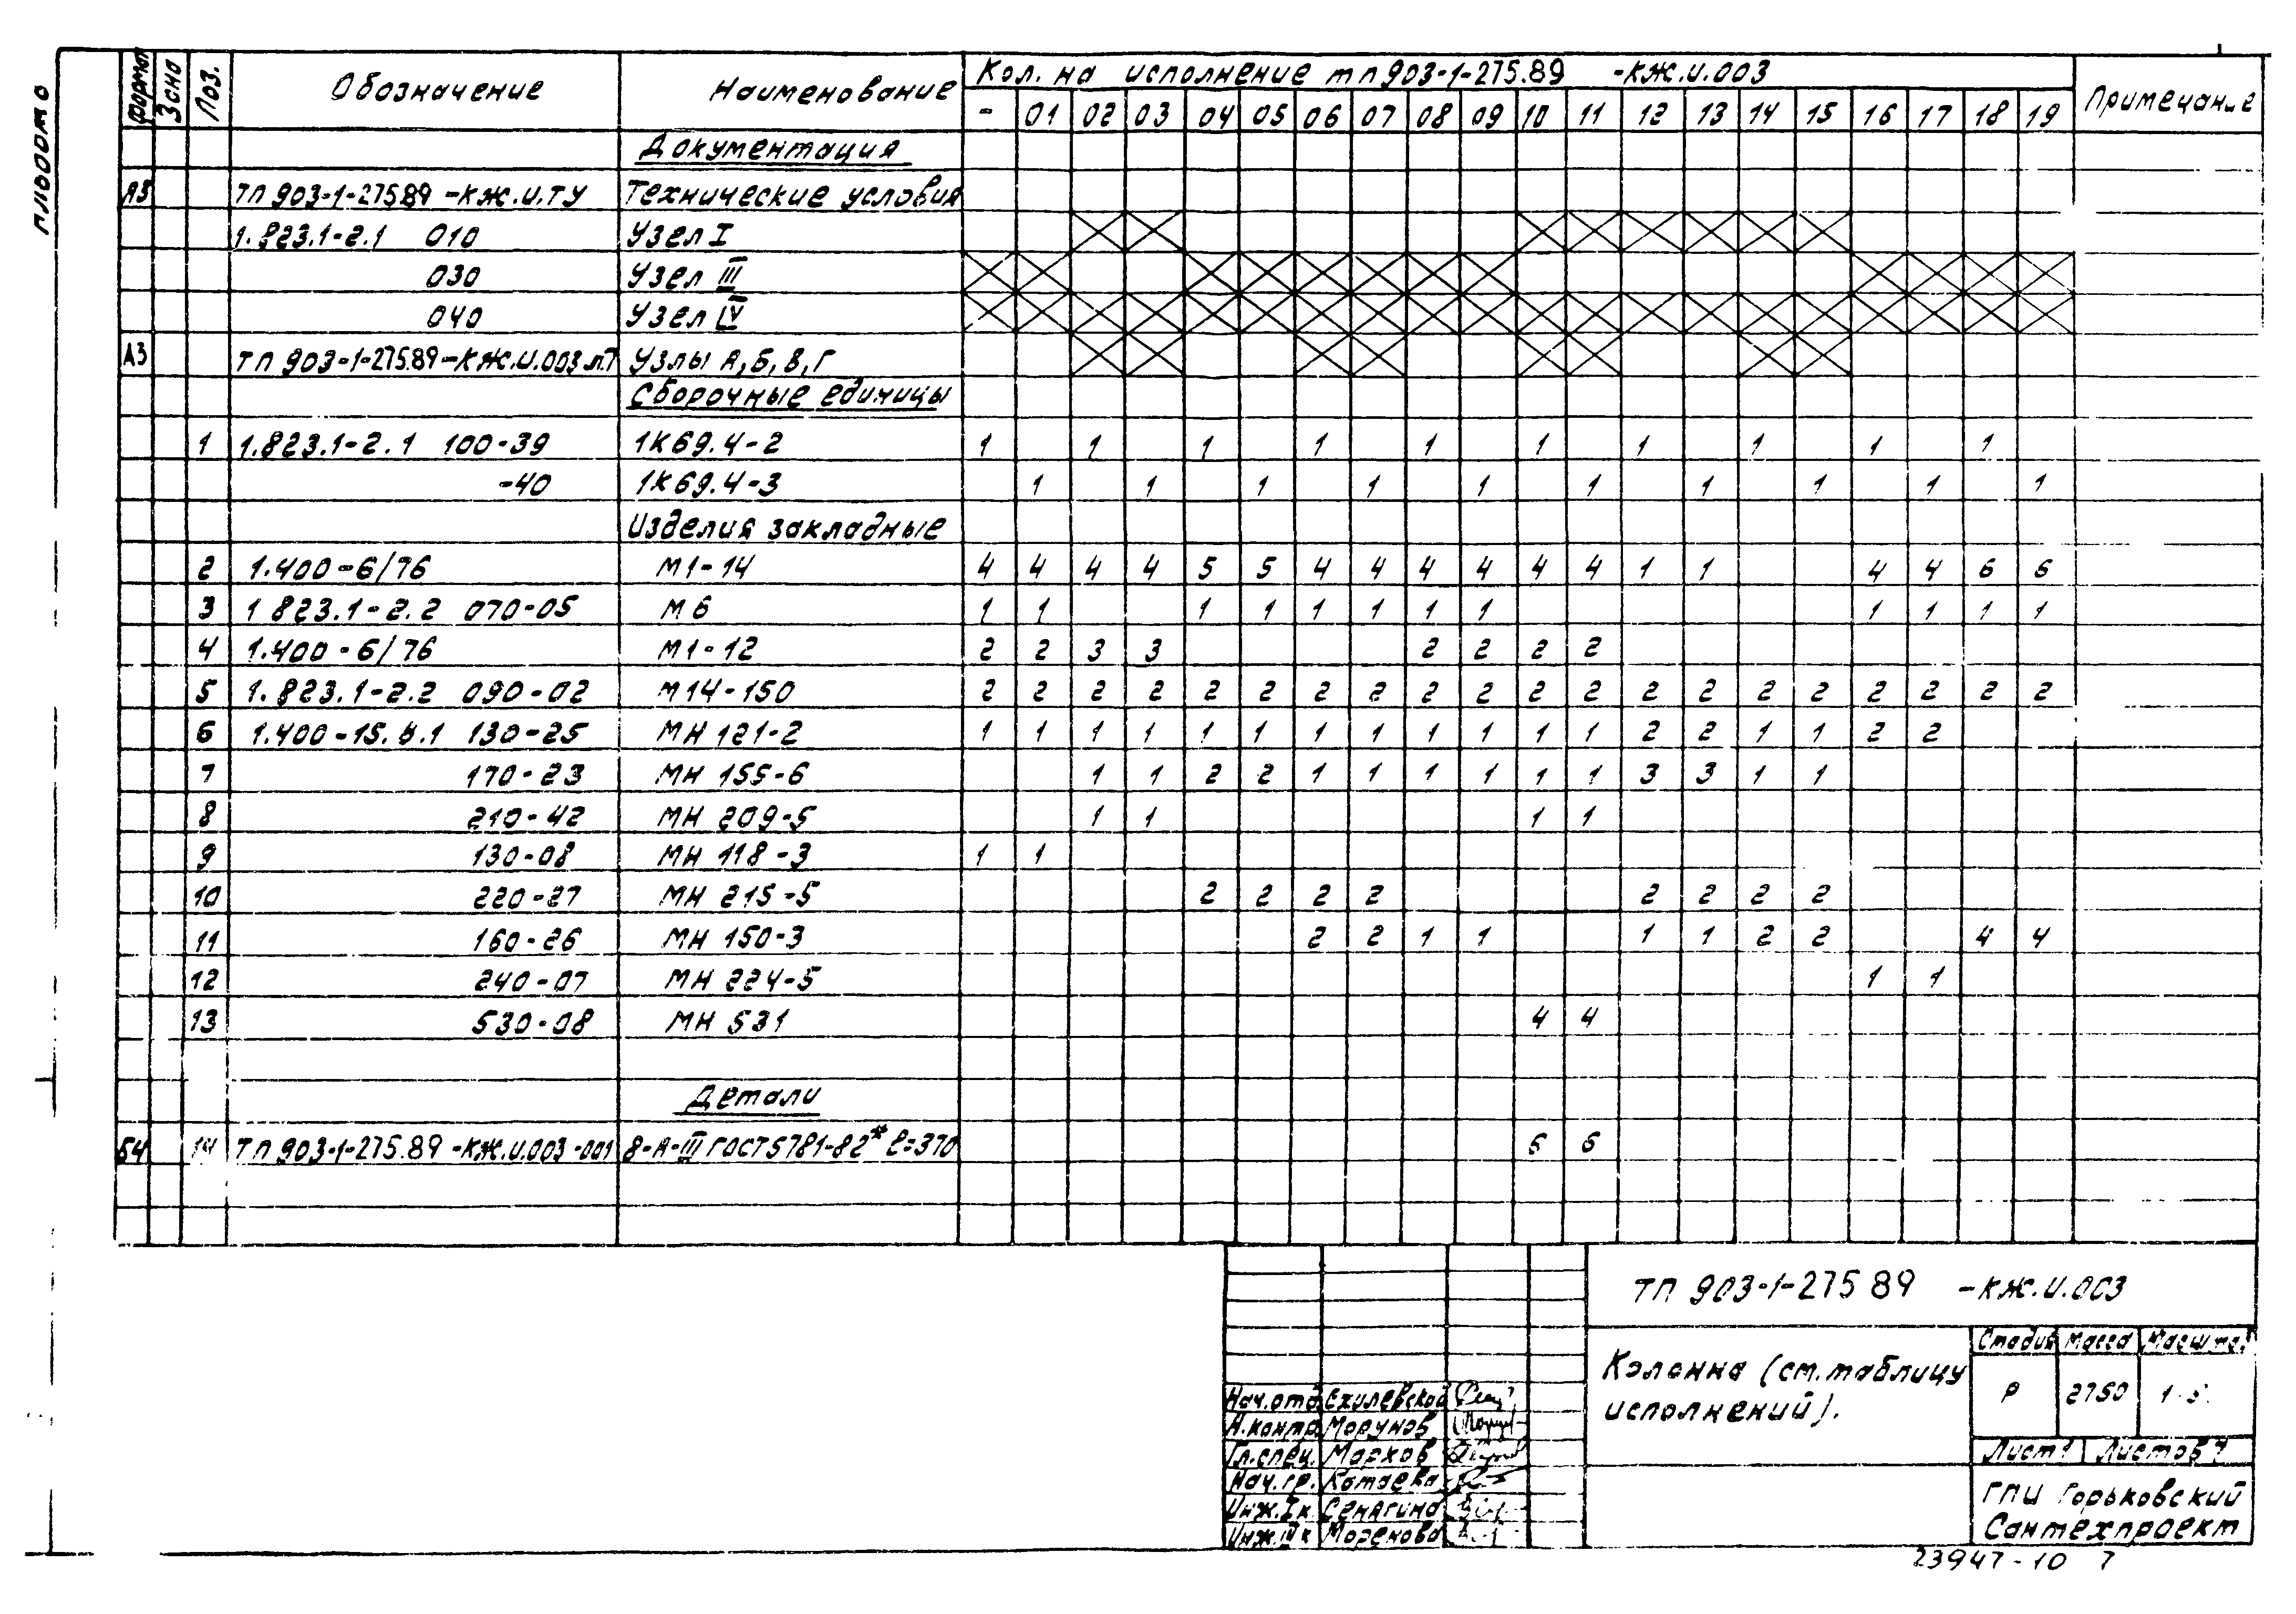 Формат Зона Поз. Обозначение Наименование Кол. на исполнение тп 903-1-275.89 -КЖ.И.003 Примечание
- 01 02 03 04 05 06 07 08 09 10 11 12 13 14 15 16 17 18 19
Документация
А3 ТП 903-1-275.89 -КЖ.И.ТУ Технические условия
1.823.1-2.1 010 Узел I
030 Узел III
040 Узел IV
А3 ТП 903-1-275.89-КЖ.И.003 Узлы А,Б,В,Г
Сборочные единицы
1 1.823.1-2.1 100-39 1К69.4-2 1 1 1 1 1 1 1 1 1 1
-40 1К69.4-3 1 1 1 1 1 1 1 1 1 1
Изделия закладные
2 1.400-6/76 М1-14 4 4 4 4 5 5 4 4 4 4 4 4 1 1 4 4 6 6
3 1 823.1-2.2 070-05 М6 1 1 1 1 1 1 1 1 1 1 1 1
4 1.400-6/76 М1-12 2 2 3 3 2 2 2 2
5 1.823.1-2.2 090-02 М14-150 2 2 2 2 2 2 2 2 2 2 2 2 2 2 2 2 2 2 2 2
6 1.400-15.В.1 130-25 МН 121-2 1 1 1 1 1 1 1 1 1 1 1 1 2 2 1 1 2 2
7 170-23 МН 155-6 1 1 2 2 1 1 1 1 1 1 3 3 1 1
8 210-42 МН 209-5 1 1 1 1
9 130-08 МН 118-3 1 1
10 220-27 МН 215-5 2 2 2 2 2 2 2 2
11 160-26 МН 150-3 2 2 1 1 1 1 2 2 4 4
12 240-07 МН 224-5 1 1
13 530-08 МН 531 4 4
Детали
Б4 14 ТП 903-1-275.89 -КЖ.И.003-001 8-А-III ГОСТ 5781-82* ℓ=370 6 6
ТП 903-1-275 89 -КЖ.И.003
Колонна (см. таблицу
исполнений).
Стадия Масса Масштаб
Р 2750
Лист 1 Листов 7
Нач.отд.
Н.контр. Морунов
Гл.спец. Марков
Нач.гр. Котаева
Инж.I к. Сенягина
Инж.II к
ГПИ Горьковский
Сантехпроект
23947-10 7